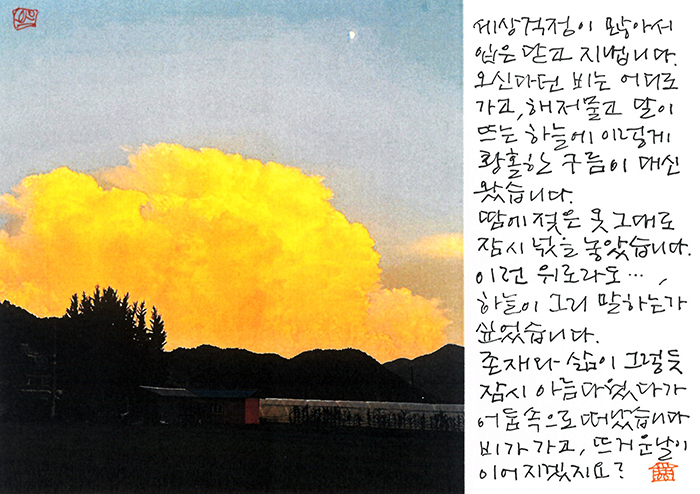 세상걱정이 많아서
입은 닫고 지냅니다.
오신다던 비는 어디로
가고, 해저물고 달이
뜨는 하늘에 이렇게
황홀한 구름이 대신
왔습니다.
땀에 젖은 옷 그대로
잠시 넋을 놓았습니다.
이런 위로라도…,
하늘이 그리 말하는가
싶었습니다.
존재와 삶이 그렇듯
잠시 아름다웠다가
어둠속으로 떠났습니다
비가 가고, 뜨거운날이
이어지겠지요?